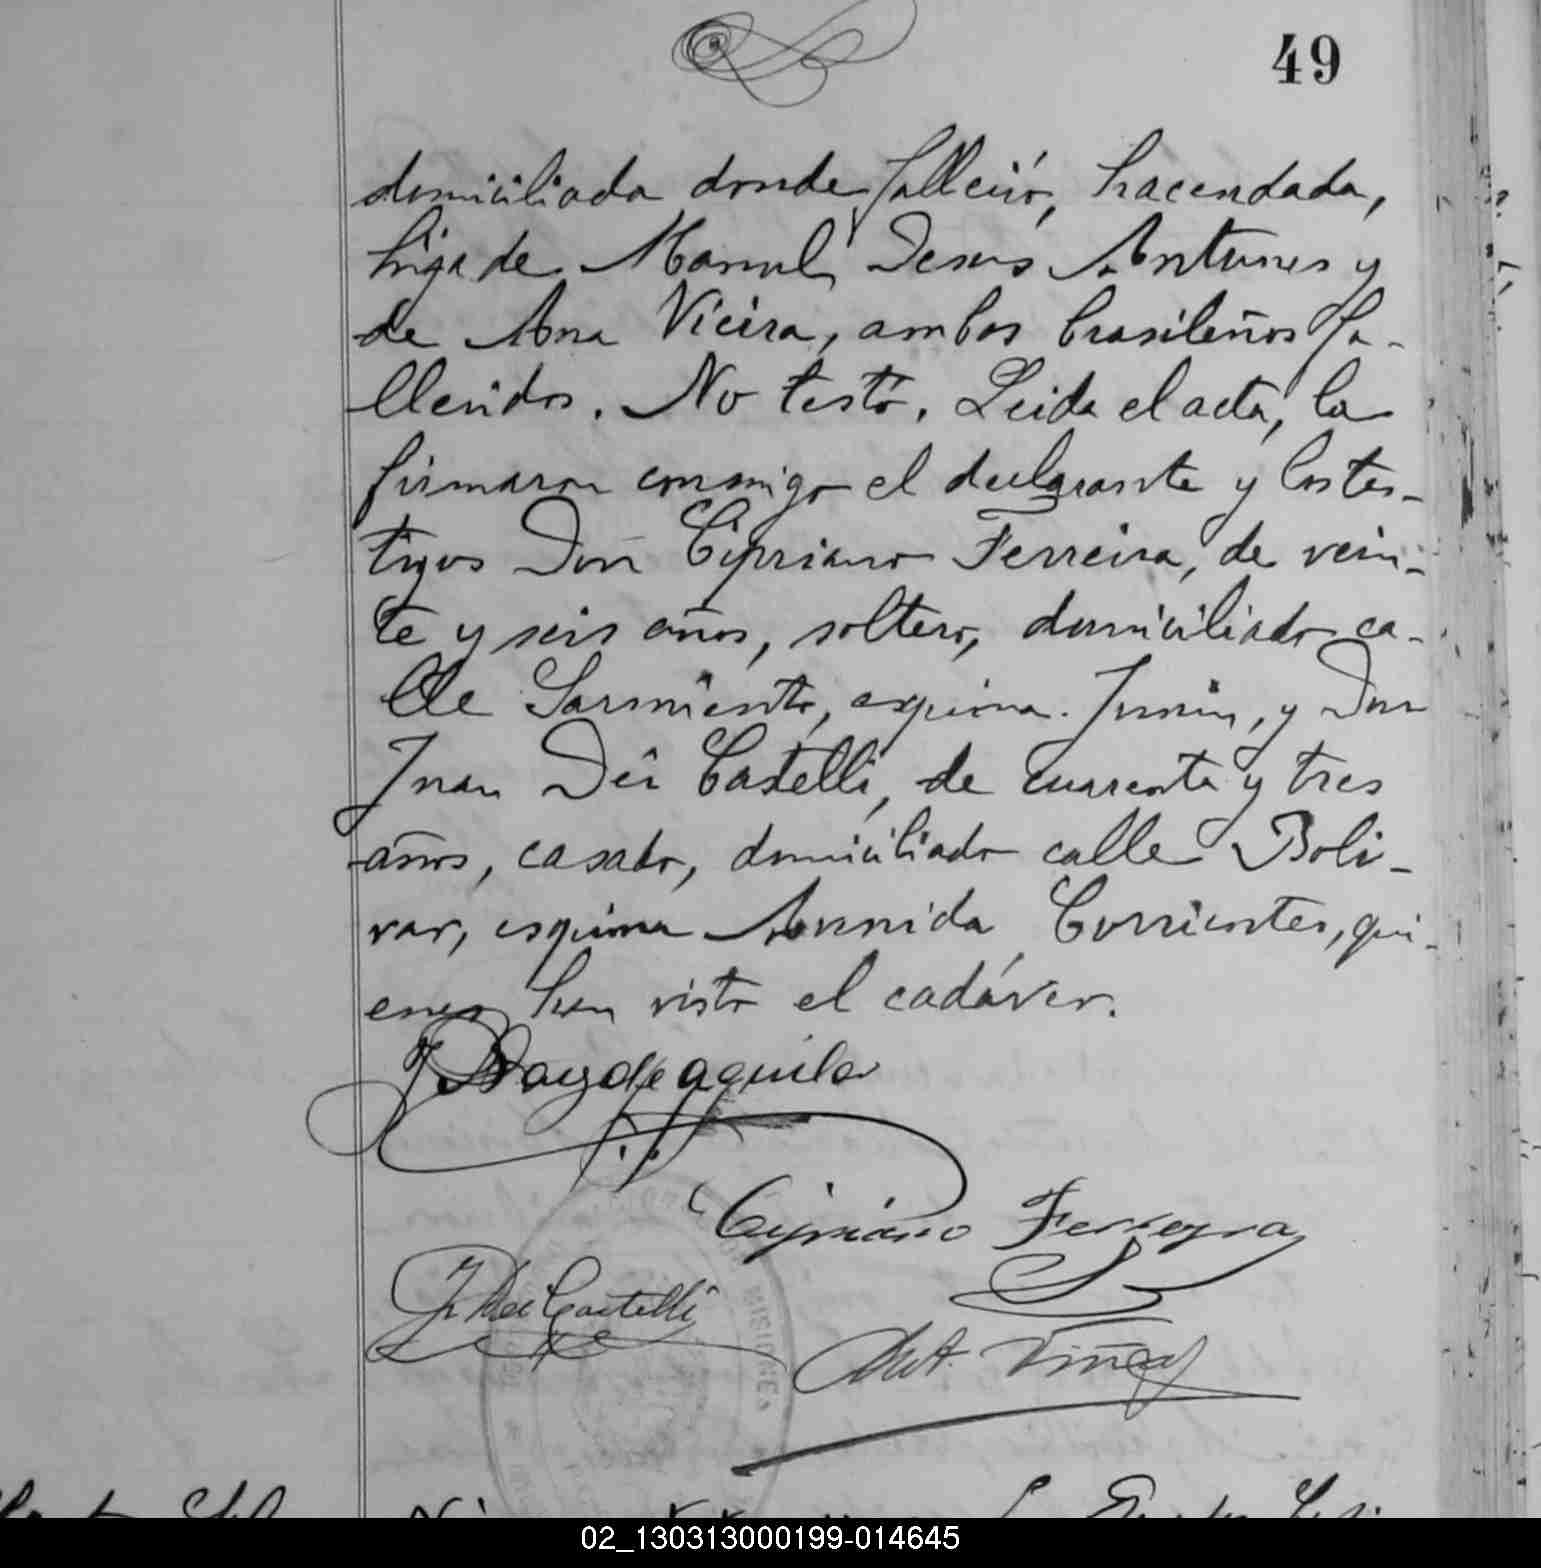 49
domiciliada donde falleció, hacendada,
hija de Manuel Jesus Antunes y
de Ana Vieira, ambos brasileños fa-
llecidos. No testó. Leida el acta, la
firmaron conmigo el declarante y los tes-
tigos Don Cipriano Ferreira, de vein-
te y seis años, soltero, domiciliado ca-
lle Sarmiento, esquina Junin, y Don
Juan Dei Castelli, de cuarenta y tres
años, casado, domiciliado calle Boli-
var, esquina Avenida Corrientes, qui-
enes han visto el cadáver.
Cipriano Ferreyra
J. Dei Castelli
MISIONES
02_130313000199-014645